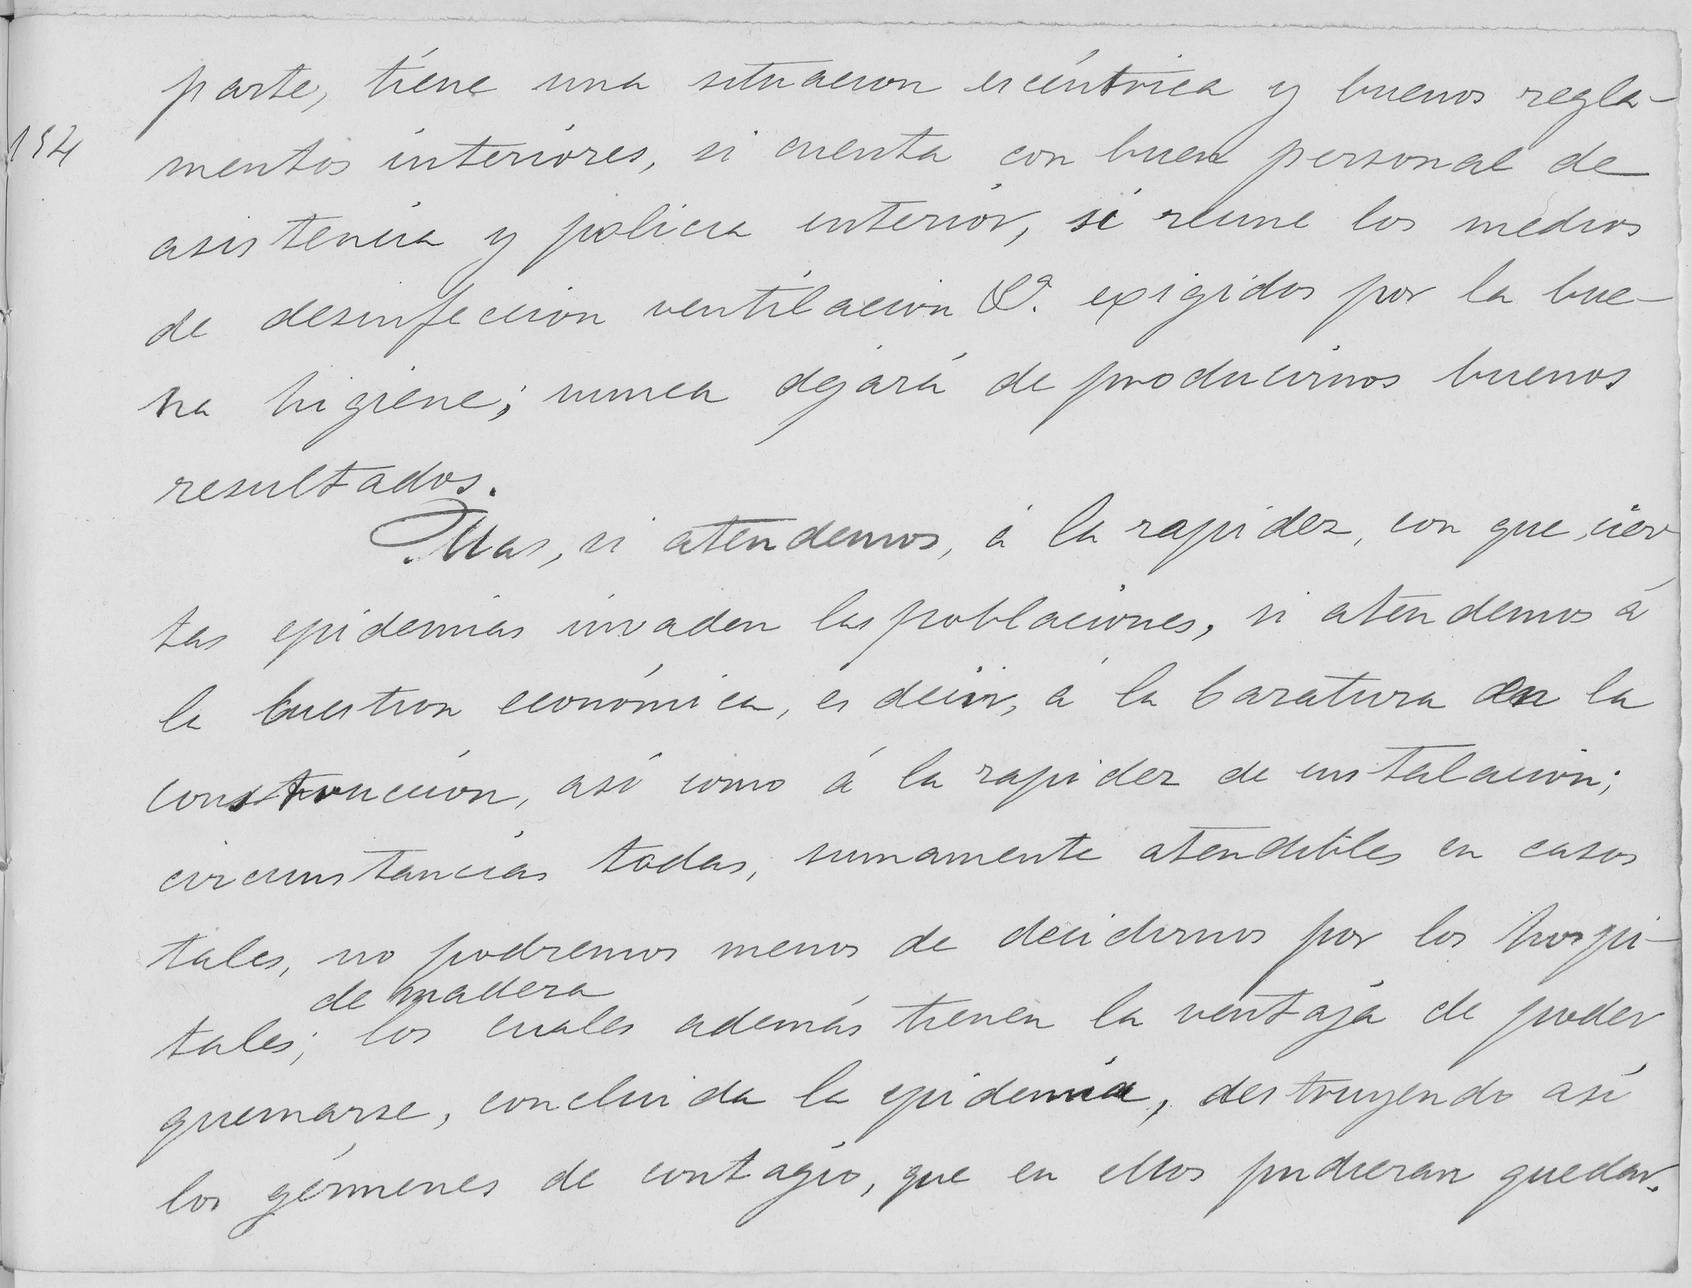 parte, tiene una situacion escéntrica y buenos regla-
154
mentos interiores, si cuenta con buen personal de
asistencia y policia interior, si reune los medios
de desinfeccion ventilacion &ª. exigidos por la bue-
na higiene; nunca dejará de producirnos buenos
resultados.
Mas, si atendemos, á la rapidez, con que, cier
tas epidemias invaden las poblaciones, si atendemos á
la cuestion económica, es decir, á la baratura en la
construccion, asi como á la rapidez de instalacion;
circunstancias todas, sumamente atendibles en casos
tales, no podremos menos de decidirnos por los hospi-
de madera
tales; los cuales además tienen la ventaja de poder
quemarse, concluida la epidemia, destruyendo asi
los gérmenes de contagio, que en ellos pudieran quedar.